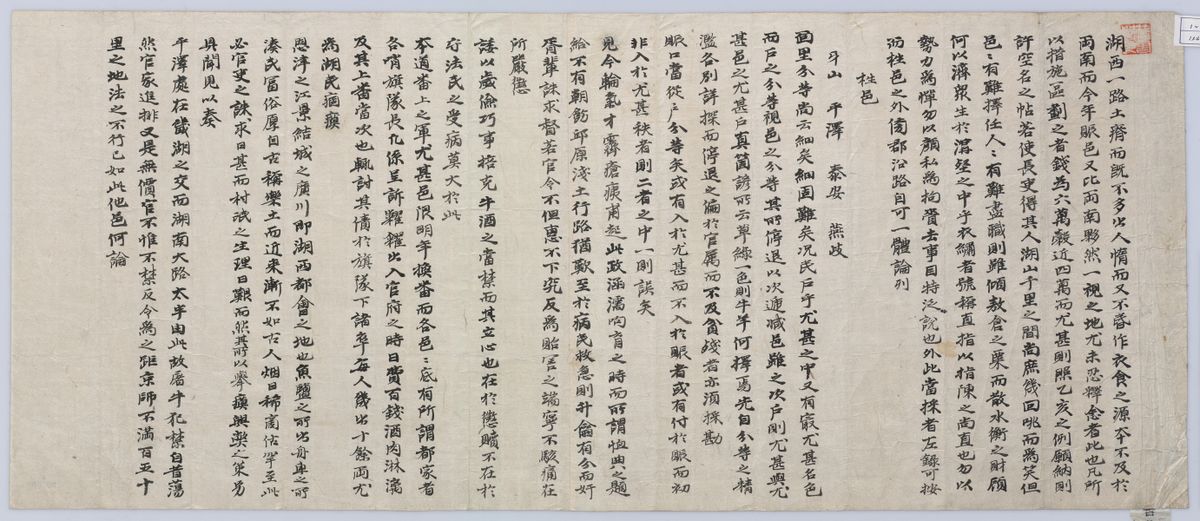 湖西一路土瘠而旣不多出人惰而又不眷作衣食之源本不及於
兩南而今年賑邑又比兩南夥然一視之地尤未忍釋念者此也凡所
以措施區劃之者錢爲六萬穀近四萬而尤甚則照乙亥之例願納則
許空名之帖若使長吏得其人湖山千里之間尚庶幾回咷而爲笑但
邑邑有難擇任人人有難盡職則雖傾敖倉之粟而散水衡之財顧
何以濟衆生於溝壑之中乎衣繡者號稱直指以指陳之尚直也勿以
勢力爲憚勿以顔私爲拘賣去事目特泛說也外此當採者左錄可按
而抽邑之外傍郡沿路自可一體論列
抽邑
牙山 平澤 泰安 燕岐
面里分等尚云細矣細固難矣况民戶乎尤甚之中又有最尤甚名色
而戶之分等視邑之分等其所停退以次遞減邑雖之次戶則尤甚與尤
甚邑之尤甚戶眞箇諺所云草綠一色則牛羊何擇焉先自分等之精
濫各別詳探而停退之偏於官屬而不及貧殘者亦須採勘
賑口當從戶分等矣或有入於尤甚而不入於賑者或有付於賑而初
非入於尤甚秩者則二者之中一則誤矣
見今輪氣才霽瘡痍甫起此政涵濡呴育之時而所謂恤典之題
給不有朝飭邱原淺土行路猶歎至於病民救急則升龠有分而奸
胥輩誅求督若官令不但惠不下究反爲貽害之端寧不駭痛在
所嚴懲
諉以歲儉巧事掊克牛酒之當禁而其立心也在於懲贖不在於
守法民之受病莫大於此
本道番上之軍尤甚邑限明年換番而各邑邑底有所謂都家者
各哨旗隊長凡係呈訴糶糴出入官府之時日費百錢酒肉淋漓
及其上番當次也輒討其債於旗隊下諸卒每人幾出十餘兩尤
爲湖民痼瘼
恩津之江景結城之廣川卽湖西都會之地也魚鹽之所出舟車之所
湊民富俗厚自古稱樂土而近來漸不如古人烟日稀商估罕至此
必官吏之誅求日甚而村氓之生理日艱而然其所以擧瘼與弊之策另
具聞見以奏
平澤處在畿湖之交而湖南大路太半由此故屠牛犯禁自昔蕩
然官家進排又是無價官不惟不禁反令爲之距京師不滿百五十
里之地法之不行已如此他邑何論